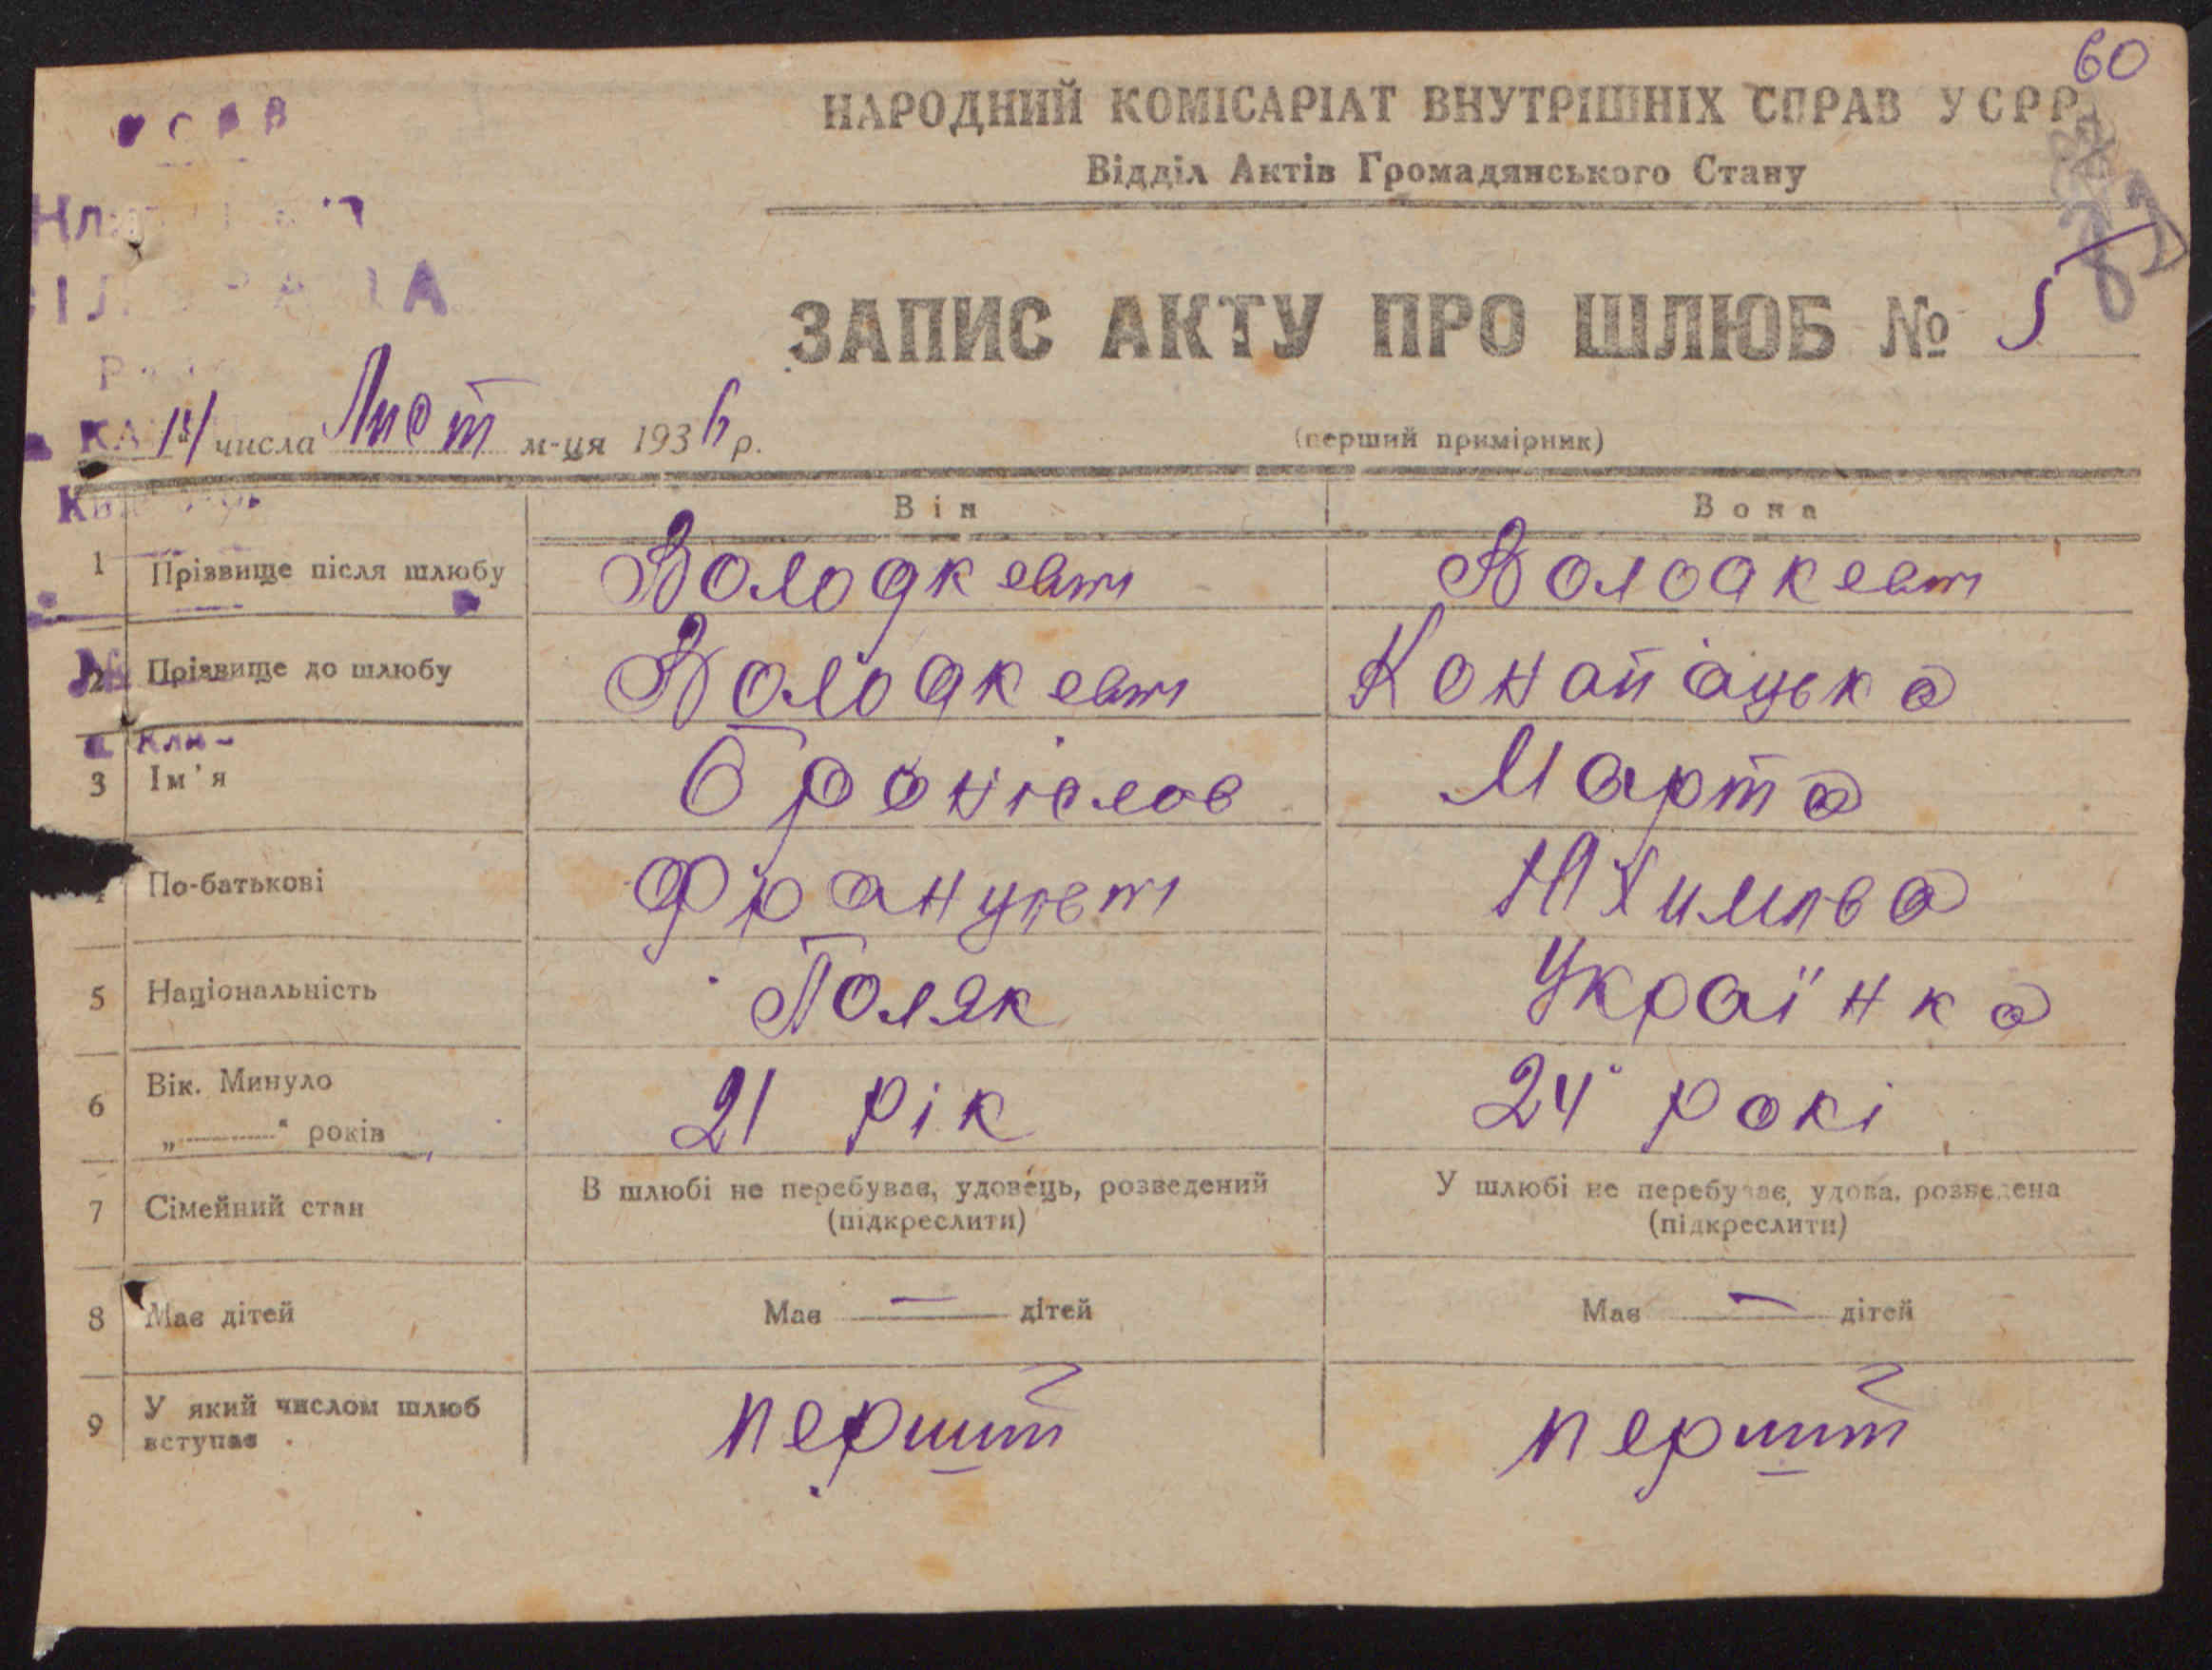 60
НАРОДНИЙ КОМІСАРІАТ ВНУТРІШНІХ СПРАВ УСРР
Відділ Актів Громадянського Стану
УСРР
ЗАПИС АКТУ ПРО ШЛЮБ № 5
числа Лист м-ця 1936 р.
(перший примірник)
Він Вона
1 Прізвище після шлюбу Володкевич Володкевич
2 Прізвище до шлюбу Володкевич Конапацька
3 Ім'я Броніслав Марта
По-батькові Францевич Юхимівва
5 Національність Поляк Українка
6 Вік. Минуло „ “ років 21 рік 24 рокі
7 Сімейний стан В шлюбі не перебуває, удовець, розведений (підкреслити) У шлюбі не перебуває, удова, розведена (підкреслити)
8 Має дітей Має — дітей Має — дітей
9 У який числом шлюб вступає перший перший